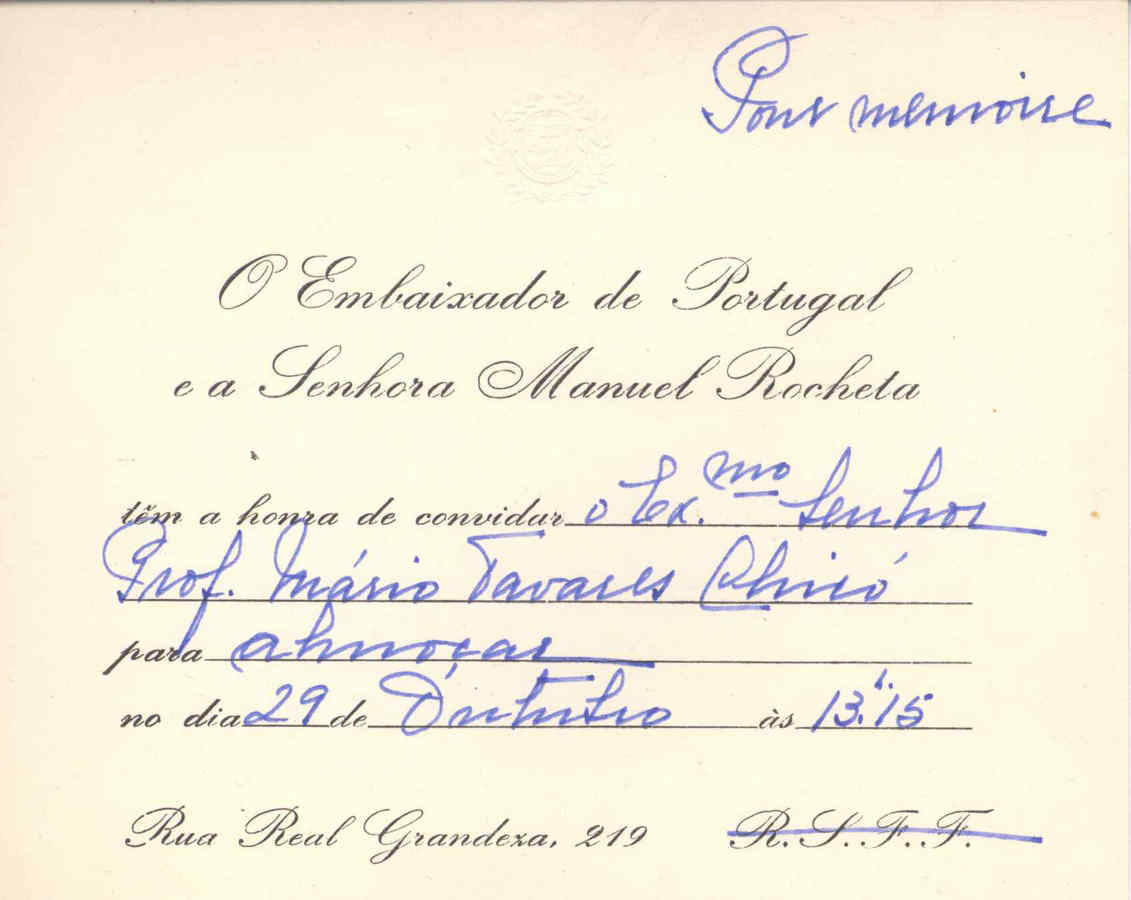 Pour memoire
O Embaixador de Portugal
e a Senhora Manuel Rocheta
têm a honra de convidar o Ex.mo Senhor
Prof. Mário Tavares Chicó
para almoçar
no dia 29 de Outubro às 13.h15
Rua Real Grandeza, 219 R. S. F. F.